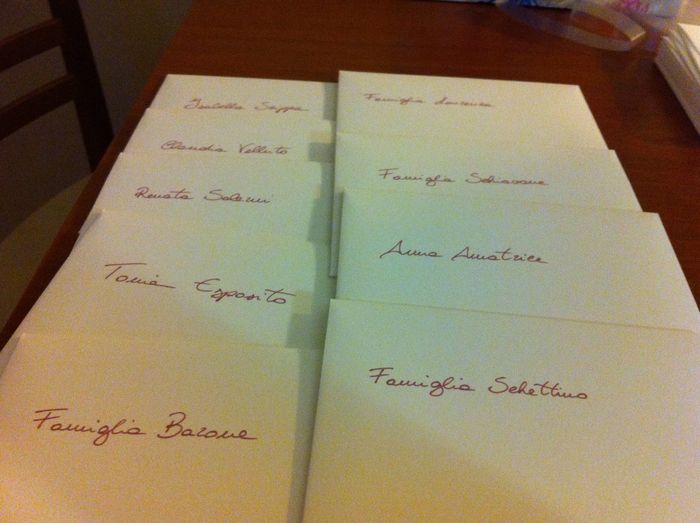 Isabella Sappa
Claudia Velluto
Renata Salemi
Tania Esposito
Famiglia Barone
Famiglia
Famiglia Schiavone
Anna Amatrice
Famiglia Schettino